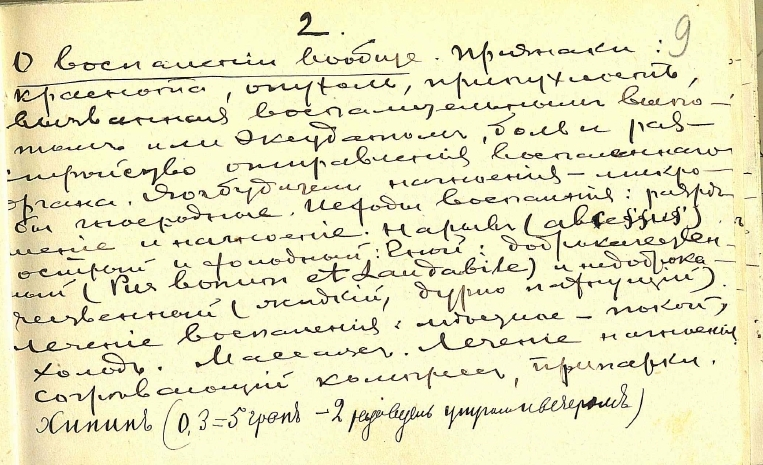 2.
9
О воспаленіи вообще. Признаки:
краснота, опухоль, припухлость,
вызванная воспалительнымъ выпо-
томъ или экссудатомъ, боль и раз-
стройство отправленія воспаленнаго
органа. Возбудители нагноенія – микро-
бы гноеродные. Исходы воспаленія: разрѣ-
шеніе и нагноеніе. Нарывъ (abscessus)
острый и холодный. Гной: доброкачествен-
ный (Pus bonum et Laudabile) и недоброка-
чественный (жидкій, дурно пахнущій).
Лѣченіе воспаленія: мѣстное – покой,
холодъ. Массажъ. Лѣченіе нагноенія
согрѣвающій компрессъ, припарки.
Хининъ (0,3=5 гранъ – 2 утромъ и вечеромъ)